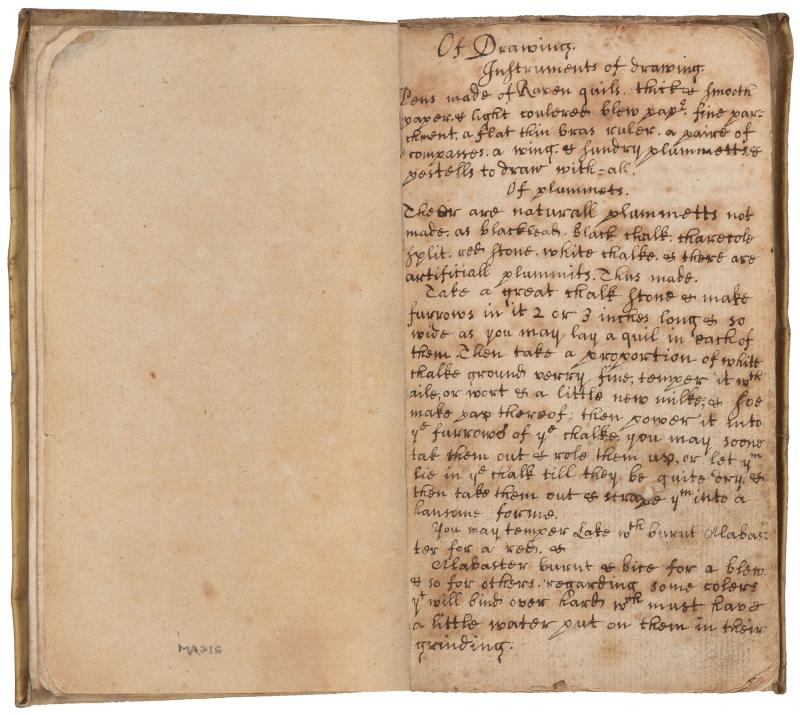 MA318
Of Drawing.
Instruments of drawing.
Pens made of Raven quils. thick & smooth
paper. & light coulered blew papr. fine par-
chment. a flat thin bras ruler. a paire of
compasses. a wing. & sundry plummetts. &
pestells to draw with-all.
Of plummets.
Their are naturall plummetts not
made. as blacklead. black chalk. charecole
split. red stone. white chalke. & there are
artificiall plummits. Thus made.
Take a great chalk stone & make
furrows in it 2 or 3 inches long & so
wide as you may lay a quil in each of
them. Then take a proportion of white
chalke ground verry fine, temper it wth
aile, or wort & a little new milke, & soe
make pap thereof: then power it into
ye furrows of ye chalke. you may soone
tak them out & role them up. or let ym
lie in ye chalk till they be quite dry. &
then take them out & scrape ym into a
hansome forme.
You may temper Lake wth burnt Alabas-
ter for a red. &
Alabaster burnt & bice for a blew.
& so for others. regarding some colers
yt will bind over hard wch must have
a little water put on them in their
grinding.